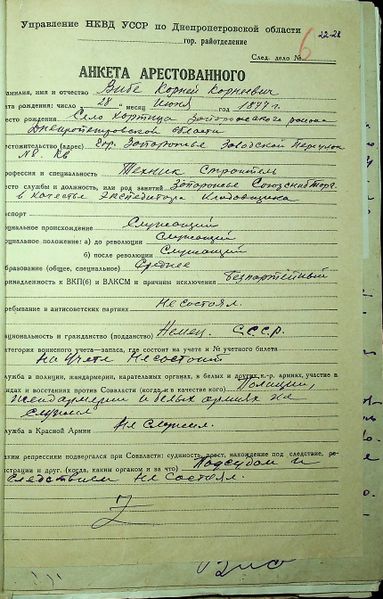 Управление НКВД УССР по Днепропетровской области
22-28
гор. райотделение
След. дело № 6
АНКЕТА АРЕСТОВАННОГО
амилия, имя и отчество Вибе Корней Корневич
ата рождения: число 28 месяц Июня год 1877 г.
есто рождения Село Хортица Запорожского района
Днепропетровской области
естожительство (адрес) Гор. Запорожье Заводской Переулок
№8. Кв
рофессия и специальность Техник Строитель
есто службы и должность, или род занятий Запорожье Союзснабторг.
в качестве Экспедитора Кладовщика
аспорт
оциальное происхождение Служащий
оциальное положение: а) до революции Служащий
б) после революции Служащий
бразование (общее, специальное) Среднее
ринадлежность к ВКП(б) и ВЛКСМ и причины исключения Безпартейный
ребывание в антисоветских партиях Не состоял.
ациональность и гражданство (подданство) Немец. С.С.С.Р.
атегория воинского учета—запаса, где состоит на учете и № учетного билета
На учете не состоит
лужба в полиции, жандармерии, карательных органах, в белых и других к.-р. армиях, участие в
ндах и восстаниях против Соввласти (когда и в качестве кого) Полиции,
Жендармерии и белых армиях не
служил
лужба в Красной Армии Не служил.
аким репрессиям подвергался при Соввласти: судимость, арест, нахождение под следствием, ре-
страции и друг. (когда, каким органом и за что) Под судом и
следствием не состоял.